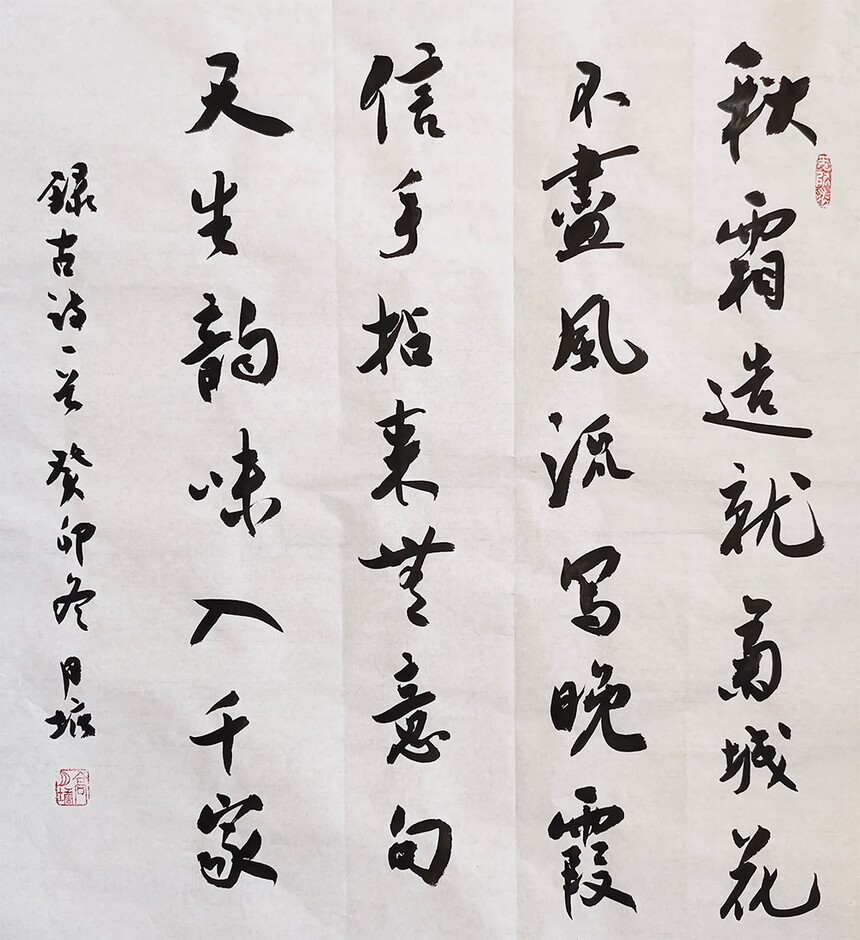 秋霜造就菊城花
不盡風流写晚霞
信手拈來無意句
天生韻味入千家
錄古詩一首癸卯冬月